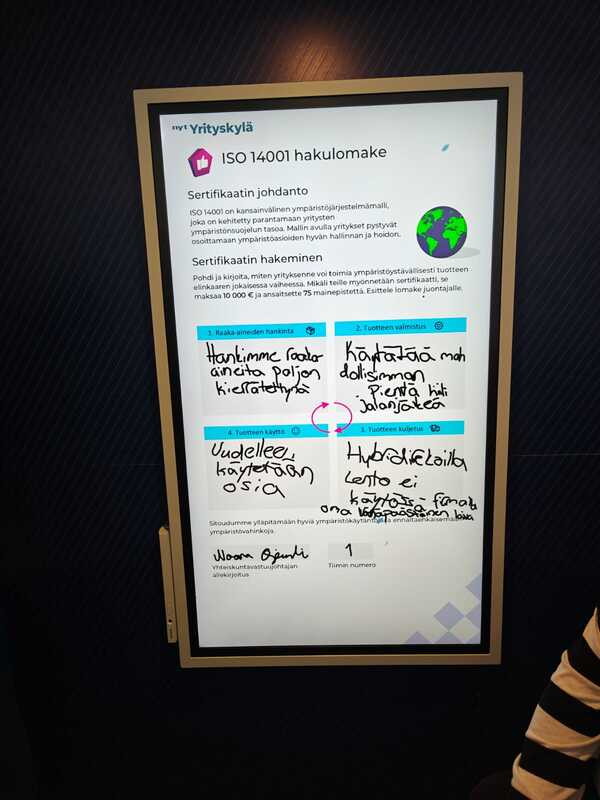 nyt Yrityskylä
ISO 14001 hakulomake
Sertifikaatin johdanto
ISO 14001 on kansainvälinen ympäristöjärjestelmämalli,
joka on kehitetty parantamaan yritysten
ympäristönsuojelun tasoa. Mallin avulla yritykset pystyvät
osoittamaan ympäristöasioiden hyvän hallinnan ja hoidon.
Sertifikaatin hakeminen
Pohdi ja kirjoita, miten yrityksenne voi toimia ympäristöystävällisesti tuotteen
elinkaaren jokaisessa vaiheessa. Mikäli teille myönnetään sertifikaatti, se
maksaa 10 000 € ja ansaitsette 75 mainepistettä. Esittele lomake juontajalle.
1. Raaka-aineiden hankinta
Hankimme raaka
aineita paljon
kierrätettynä
2. Tuotteen valmistus
Käytätää mah
dollisimman
pientä hiili
jalanjälkeä
4. Tuotteen käyttö
Uudelleen
käytetään
osia
3. Tuotteen kuljetus
Hybridi
Lento ei
käytössä
oma
Sitoudumme ylläpitämään hyviä ympäristökäytäntöjä ja ennaltaehkäisemään
ympäristövahinkoja.
Yhteiskuntavastuujohtajan
allekirjoitus
1
Tiimin numero